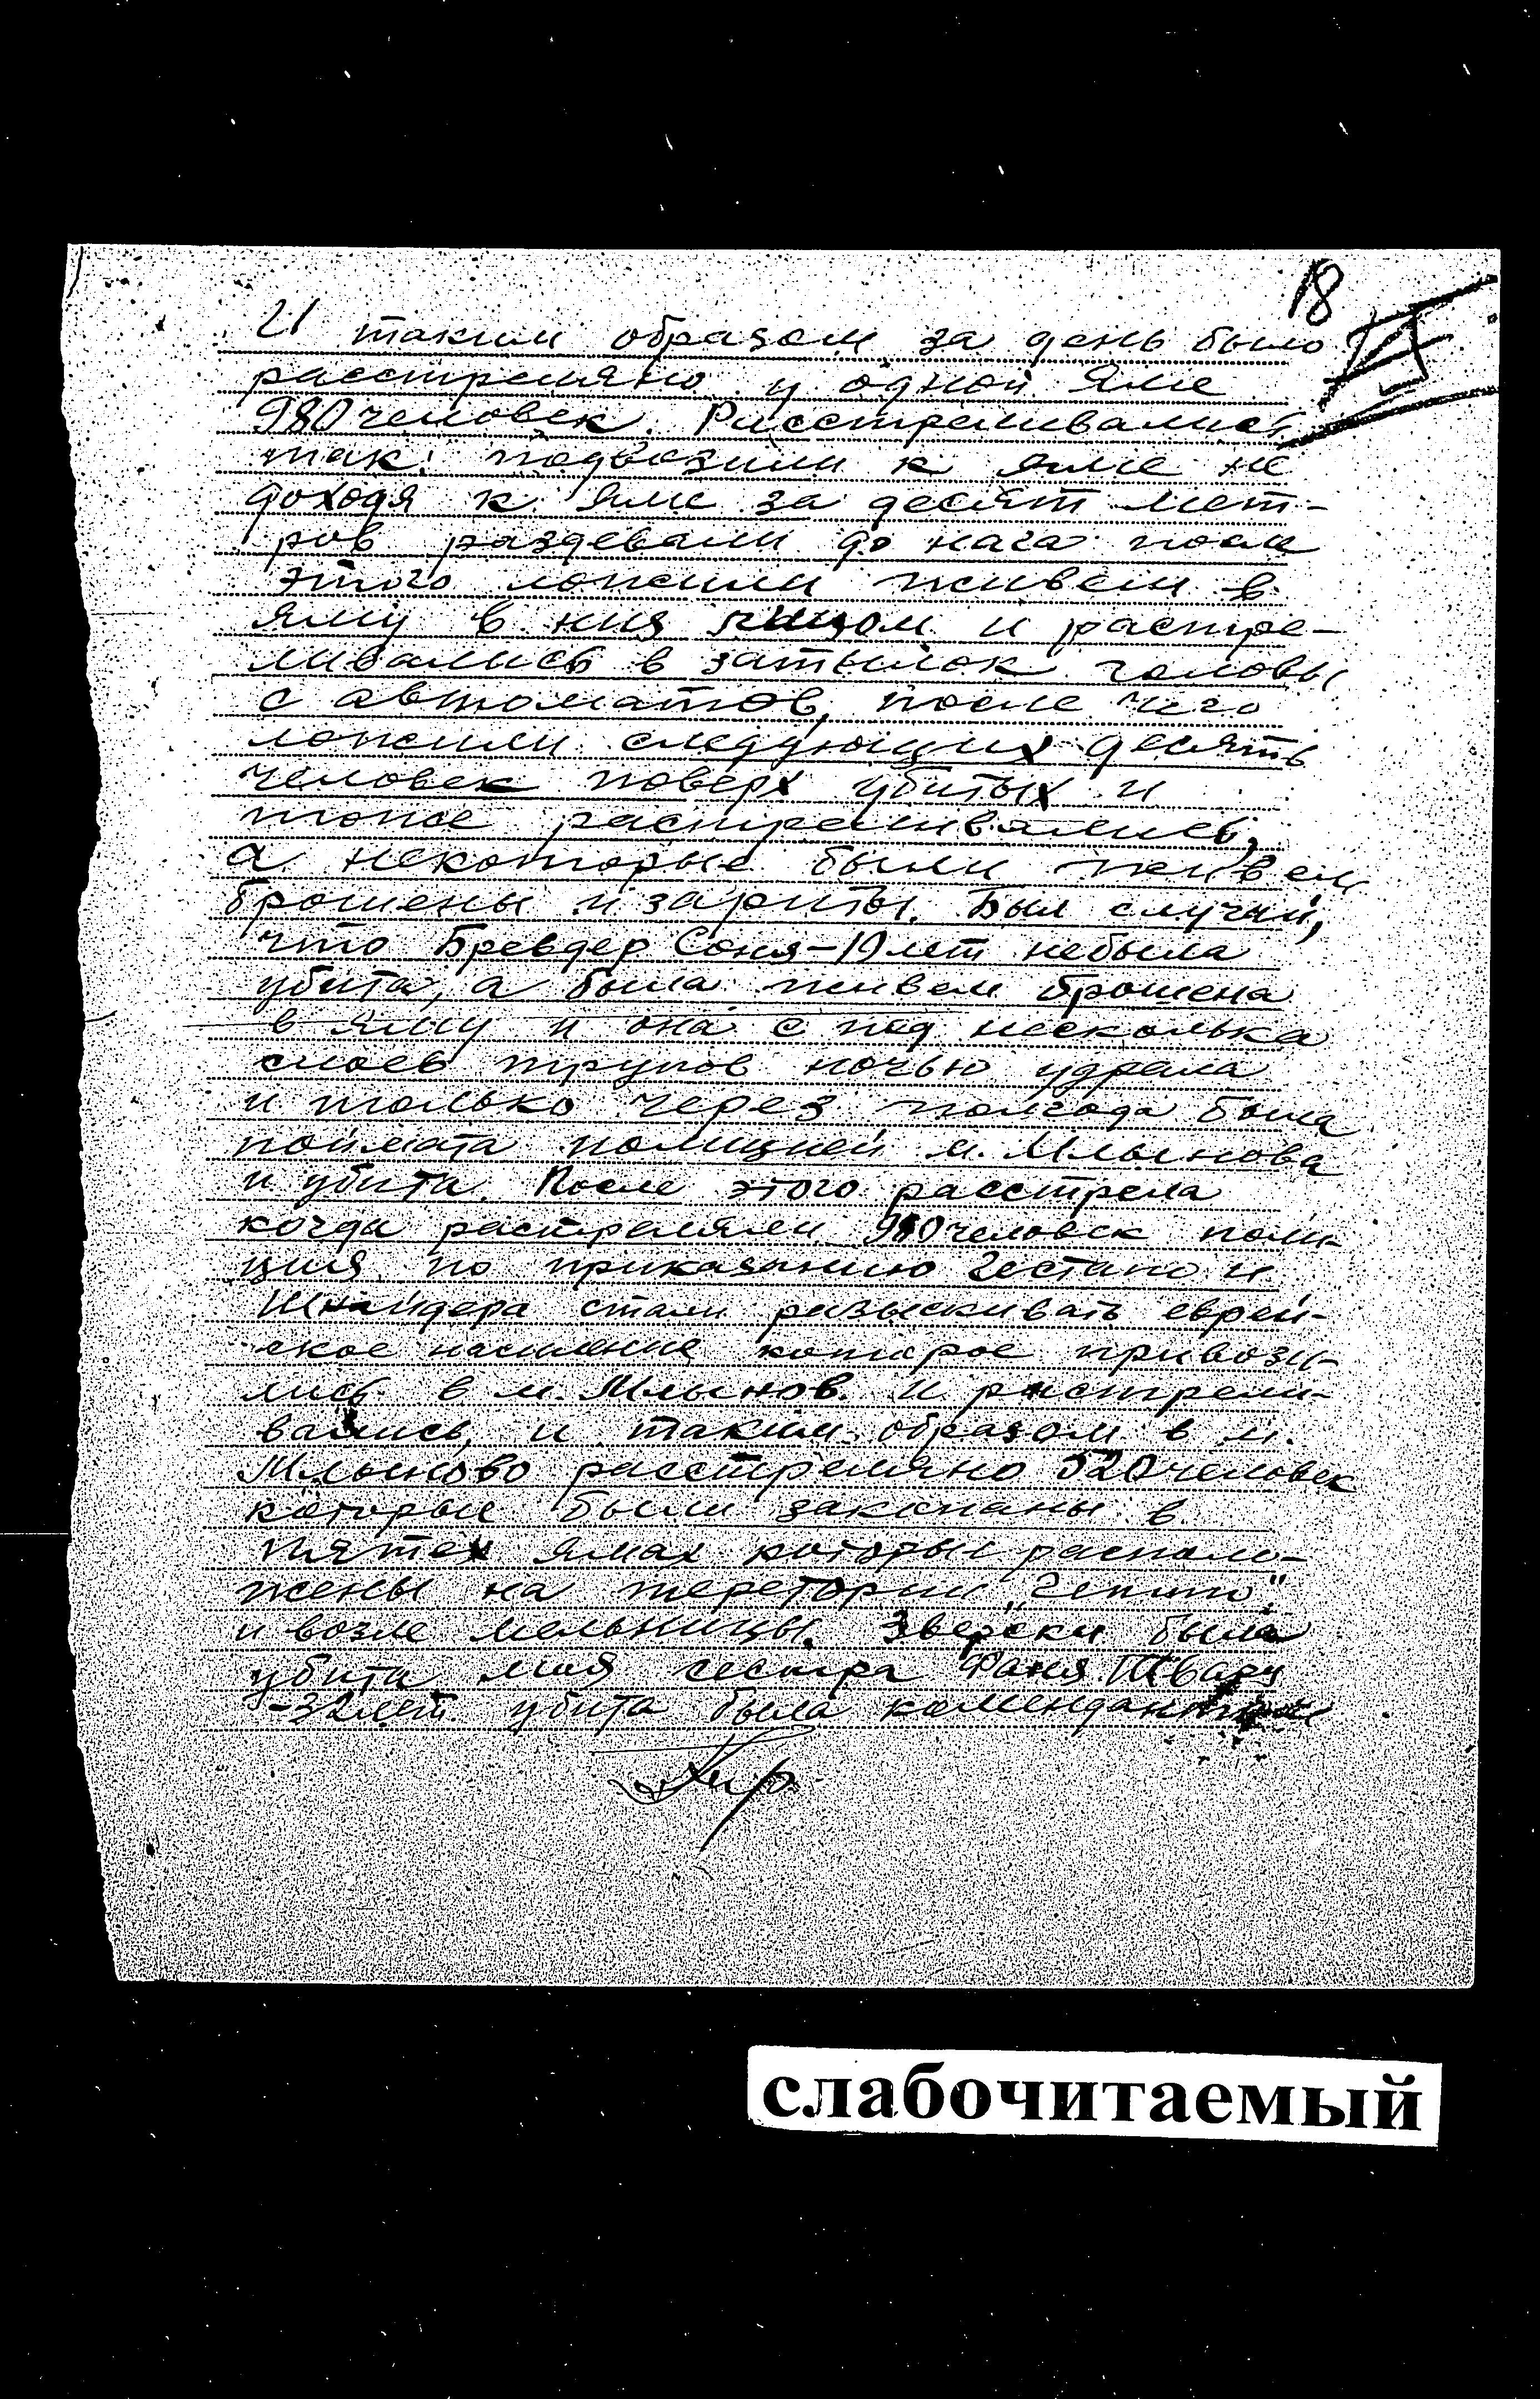 18
И таким образом за день было
расстреляно у одной яме
980 человек. Расстреливались
так: подвозили к яме не
доходя к яме за десят мет-
ров раздевали до нага после
этого ложили живем в
яму в низ лицом и растре-
ливались в затылок головы
с автоматов, после чего
ложили следующих десять
человек поверх убитых и
тоже растреливались,
а некоторые были живем
брошены и зариты. Был случай,
что Бревдер Соня-19 лет небыла
убита, а была живем брошена
в яму и она с под несколька
слоев трупов ночью удрала
и только через полгода была
поймата полицией м. Млынова
и убита. После этого расстрела
когда растреляли 980 человек поли-
ция по приказанию Гестапо и
Шнайдера стали разыскивать еврей-
ское население которое привози-
лись в м. Млынов. и растрели-
вались, и таким образом в м.
Млыново расстреляно 520 человек
которые были закопаны в
пятех ямах которые располо-
жены на теретории
и возле мельницы. Зверски была
убита моя сестра Фаня
-32 лет. убита была комендантом
слабочитаемый